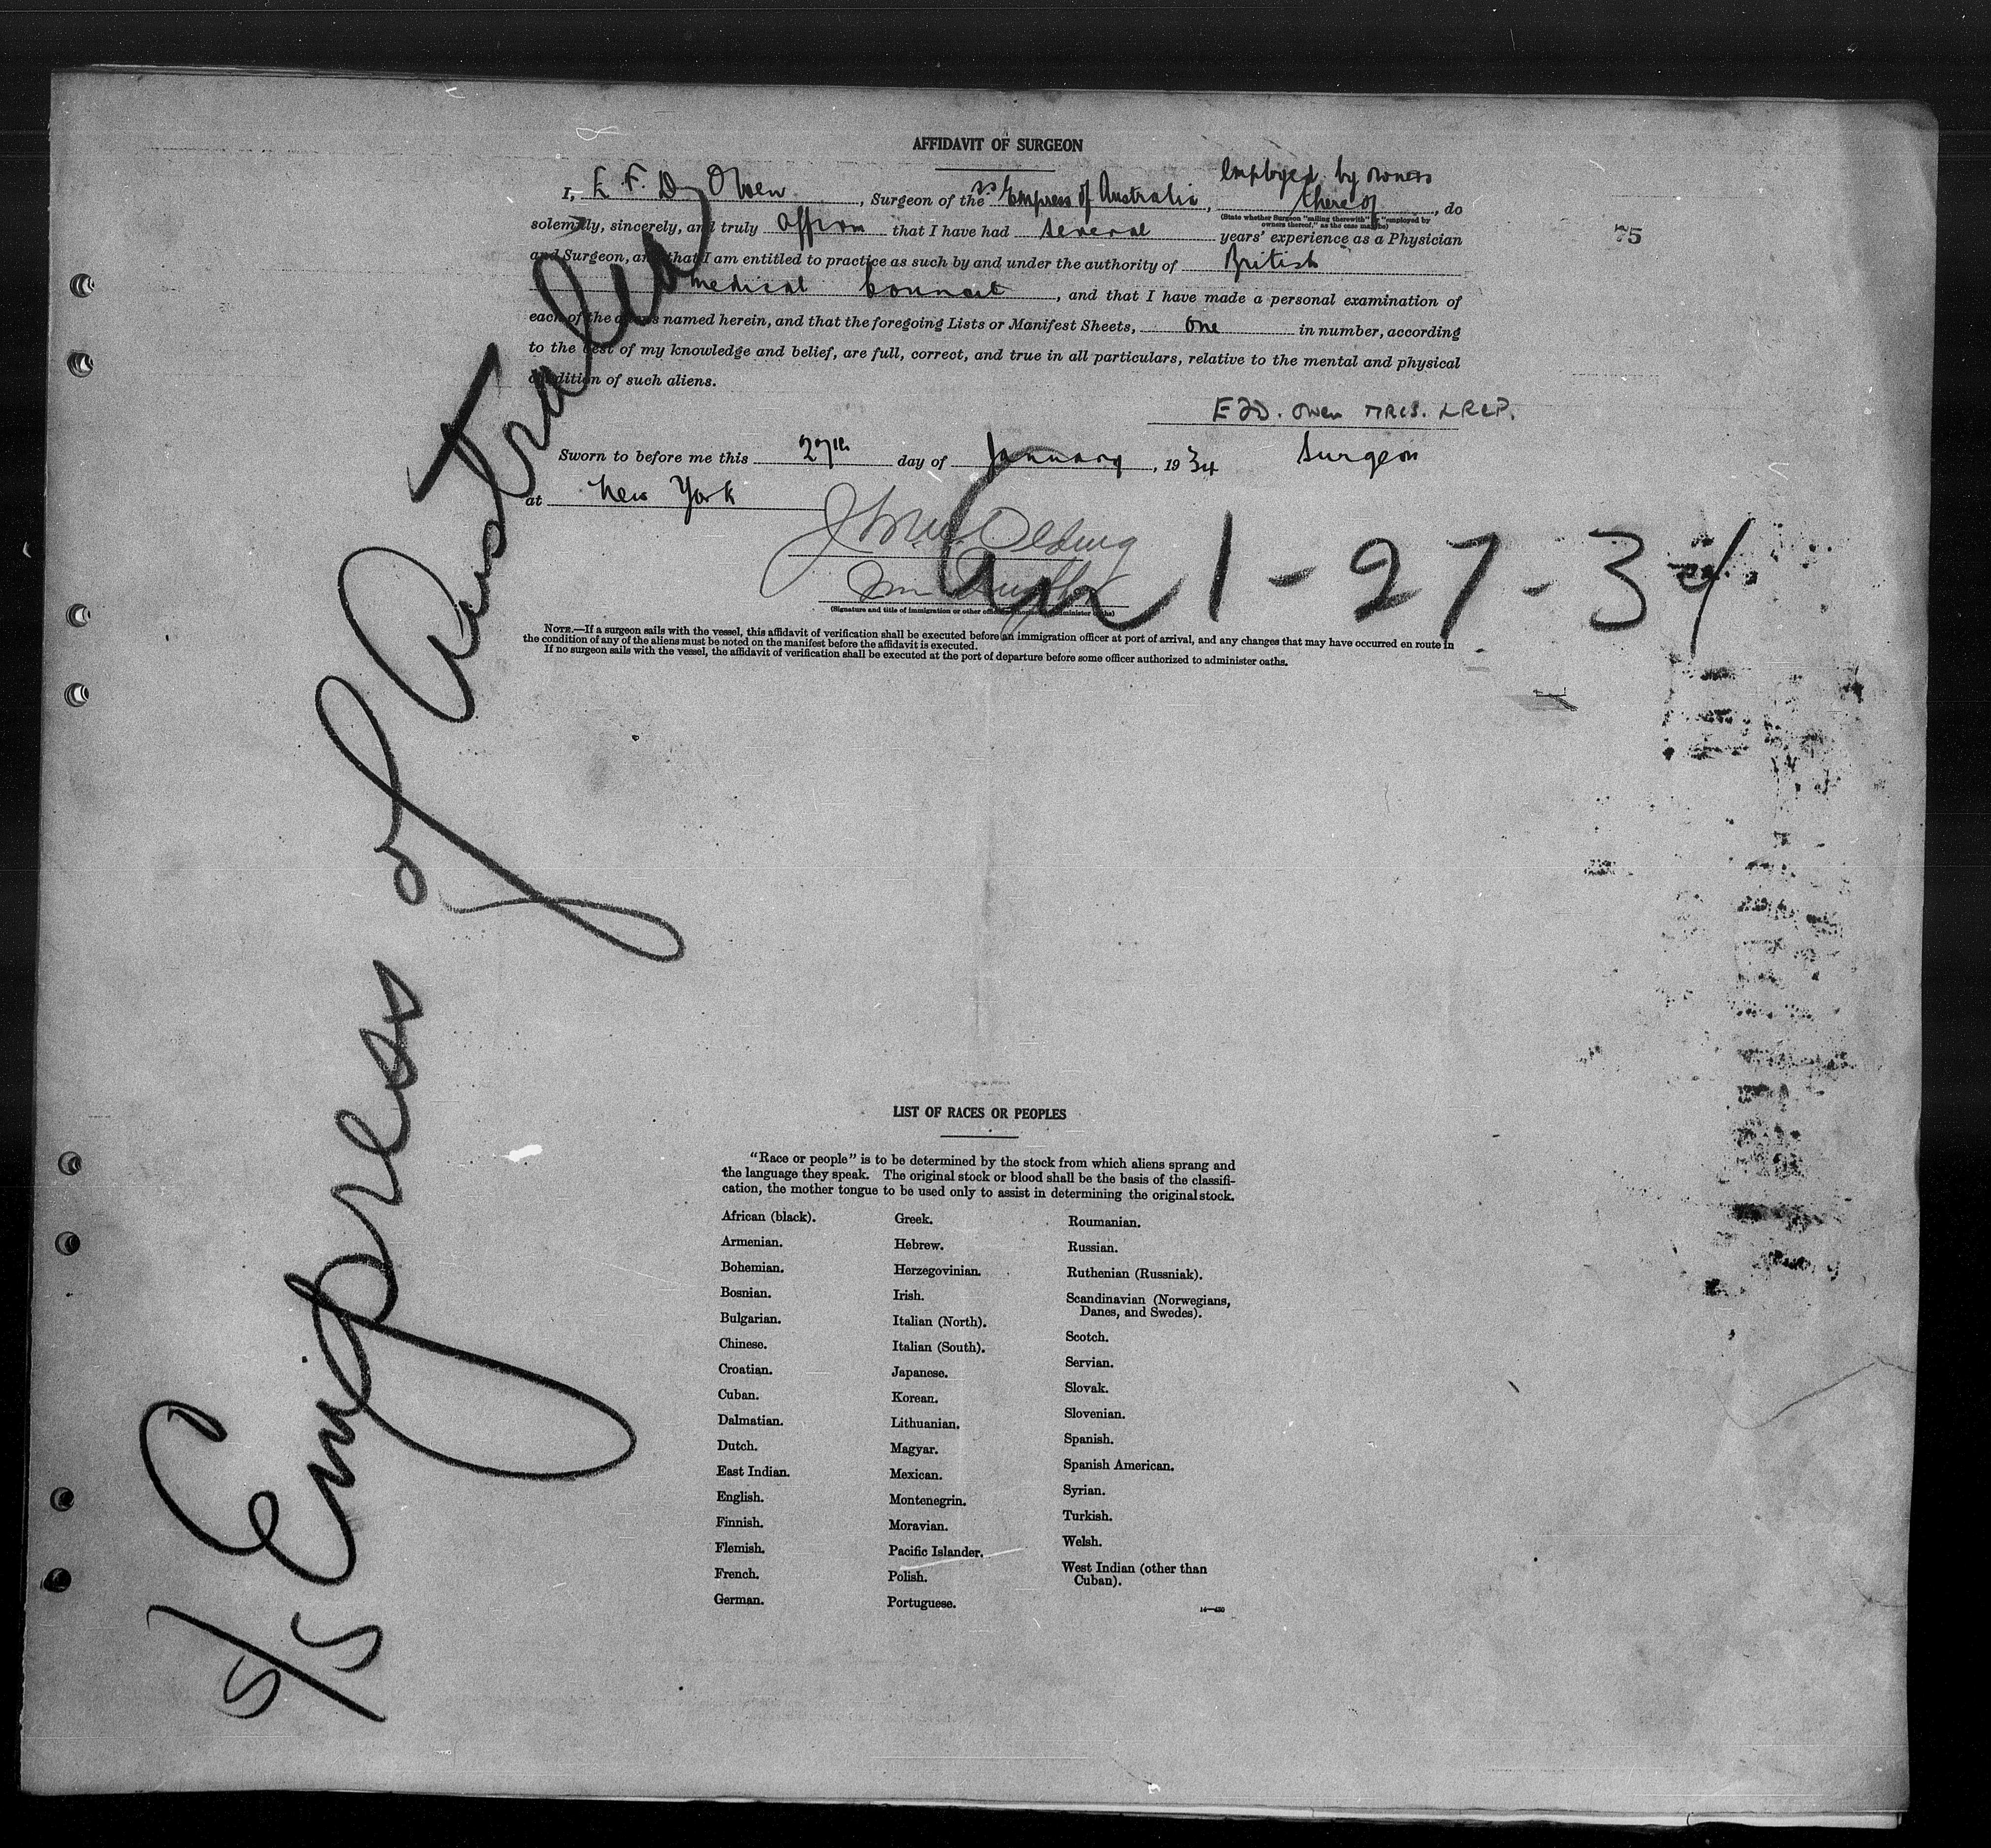 AFFIDAVIT OF SURGEON
employed by owners
I, E. F. D. Owen, Surgeon of the ss Empress of Australia, thereof, do
(State whether Surgeon "sailing therewith" or "employed by
owners thereof," as the case may be)
solemnly, sincerely, and truly affirm that I have had several years' experience as a Physician
75
and Surgeon, and that I am entitled to practice as such by and under the authority of British
medical council, and that I have made a personal examination of
each of the aliens named herein, and that the foregoing Lists or Manifest Sheets, one in number, according
to the best of my knowledge and belief, are full, correct, and true in all particulars, relative to the mental and physical
condition of such aliens.
E F D. Owen MRCS. LRCP.
Sworn to before me this 27th day of January, 1934 Surgeon
at New York
1-27-34
(Signature and title of immigration or other officer authorized to administer oaths)
NOTE.—If a surgeon sails with the vessel, this affidavit of verification shall be executed before an immigration officer at port of arrival, and any changes that may have occurred en route in
the condition of any of the aliens must be noted on the manifest before the affidavit is executed.
If no surgeon sails with the vessel, the affidavit of verification shall be executed at the port of departure before some officer authorized to administer oaths.
S/S Empress of Australia
LIST OF RACES OR PEOPLES
"Race or people" is to be determined by the stock from which aliens sprang and
the language they speak. The original stock or blood shall be the basis of the classifi-
cation, the mother tongue to be used only to assist in determining the original stock.
African (black).
Armenian.
Bohemian.
Bosnian.
Bulgarian.
Chinese.
Croatian.
Cuban.
Dalmatian.
Dutch.
East Indian.
English.
Finnish.
Flemish.
French.
German.
Greek.
Hebrew.
Herzegovinian.
Irish.
Italian (North).
Italian (South).
Japanese.
Korean.
Lithuanian.
Magyar.
Mexican.
Montenegrin.
Moravian.
Pacific Islander.
Polish.
Portuguese.
Roumanian.
Russian.
Ruthenian (Russniak).
Scandinavian (Norwegians,
Danes, and Swedes).
Scotch.
Servian.
Slovak.
Slovenian.
Spanish.
Spanish American.
Syrian.
Turkish.
Welsh.
West Indian (other than
Cuban).